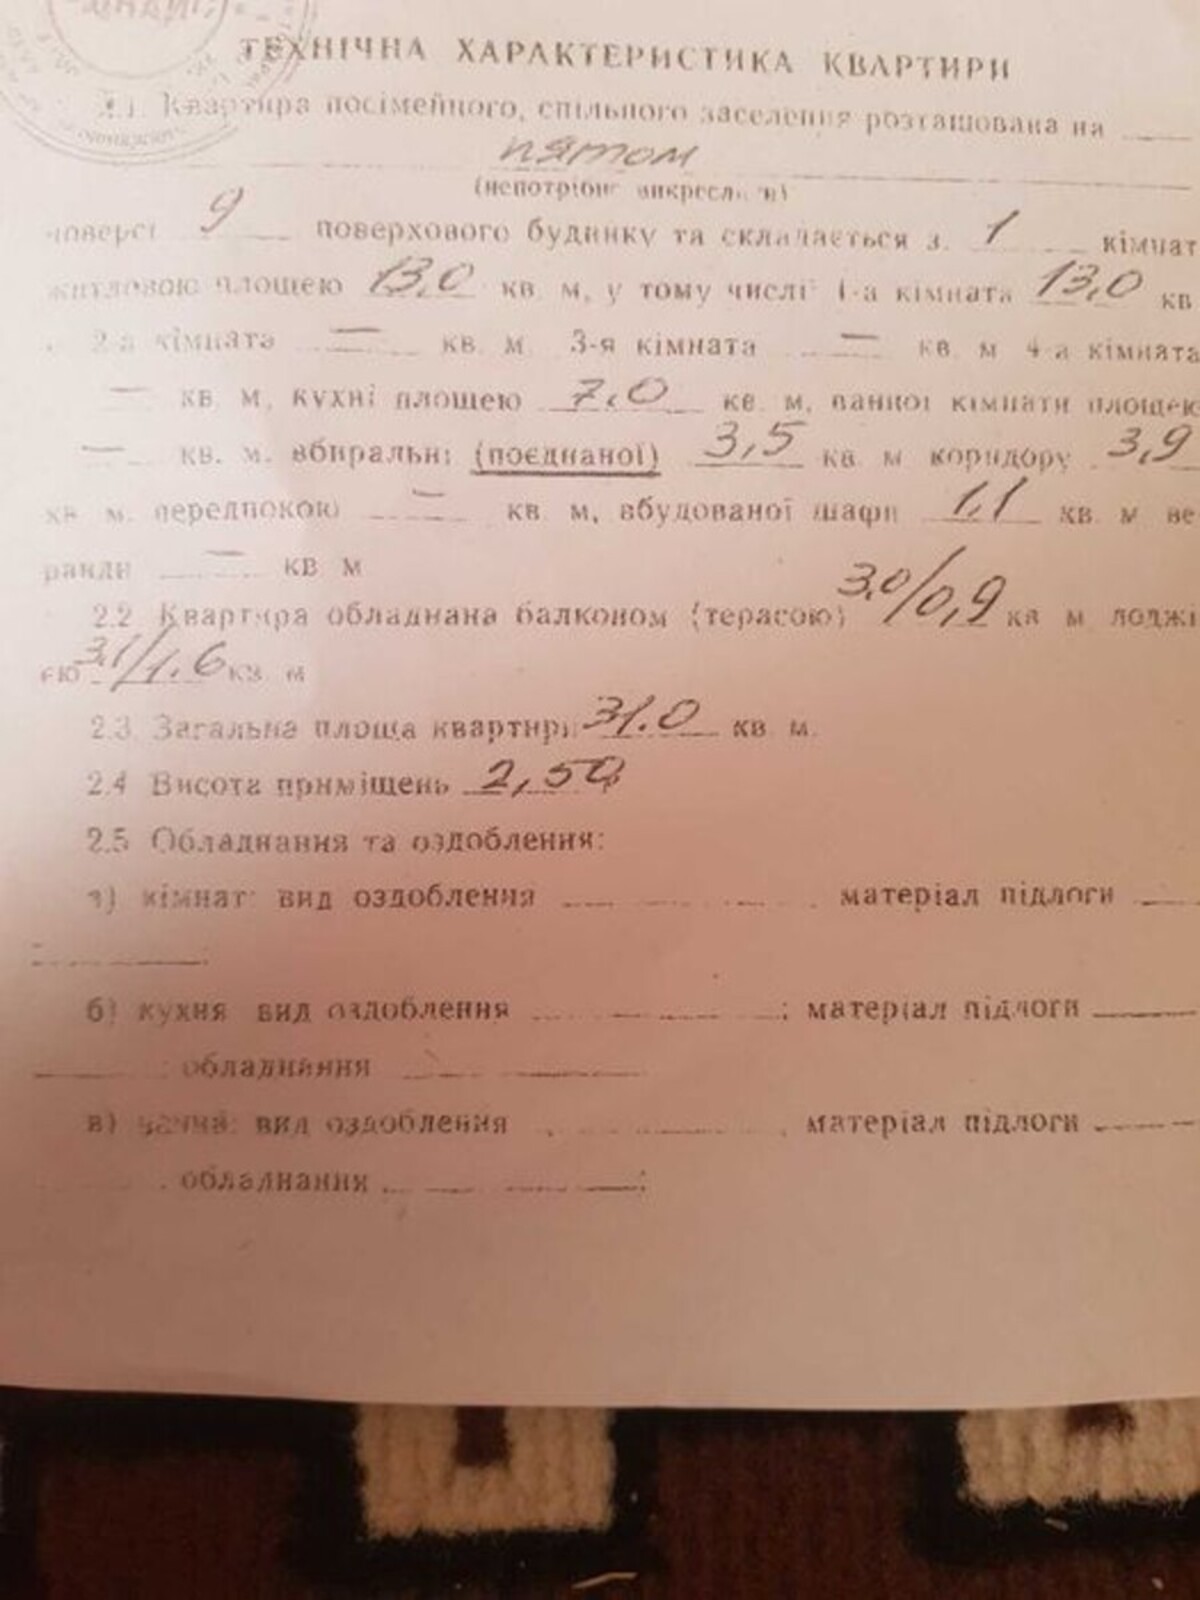 ТЕХНІЧНА ХАРАКТЕРИСТИКА КВАРТИРИ
2.1. Квартира посімейного, спільного заселення розташована на
пятом
(непотрібне викреслити)
поверсі 9 поверхового будинку та складається з 1 кімнат
житловою площею 13,0 кв. м, у тому числі: 1-а кімната 13,0 кв
. 2-а кімната — кв. м 3-я кімната — кв. м 4-а кімната
— кв. м, кухні площею 7,0 кв. м, ванної кімнати площею
— кв. м. вбиральні (поєднаної) 3,5 кв. м коридору 3,9
кв. м. передпокою — кв. м, вбудованої шафи 1,1 кв. м ве
ранди — кв м
2.2 Квартира обладнана балконом (терасою) 3,0/0,9 кв м лоджі
єю 3,1/1.6 кв. м
2.3. Загальна площа квартири 31.0 кв. м.
2.4 Висота приміщень 2,50
2.5 Обладнання та оздоблення:
а) кімнат: вид оздоблення матеріал підлоги
б) кухня вид оздоблення ; матеріал підлоги
обладнання
в) ванна: вид оздоблення , матеріал підлоги
обладнання ;